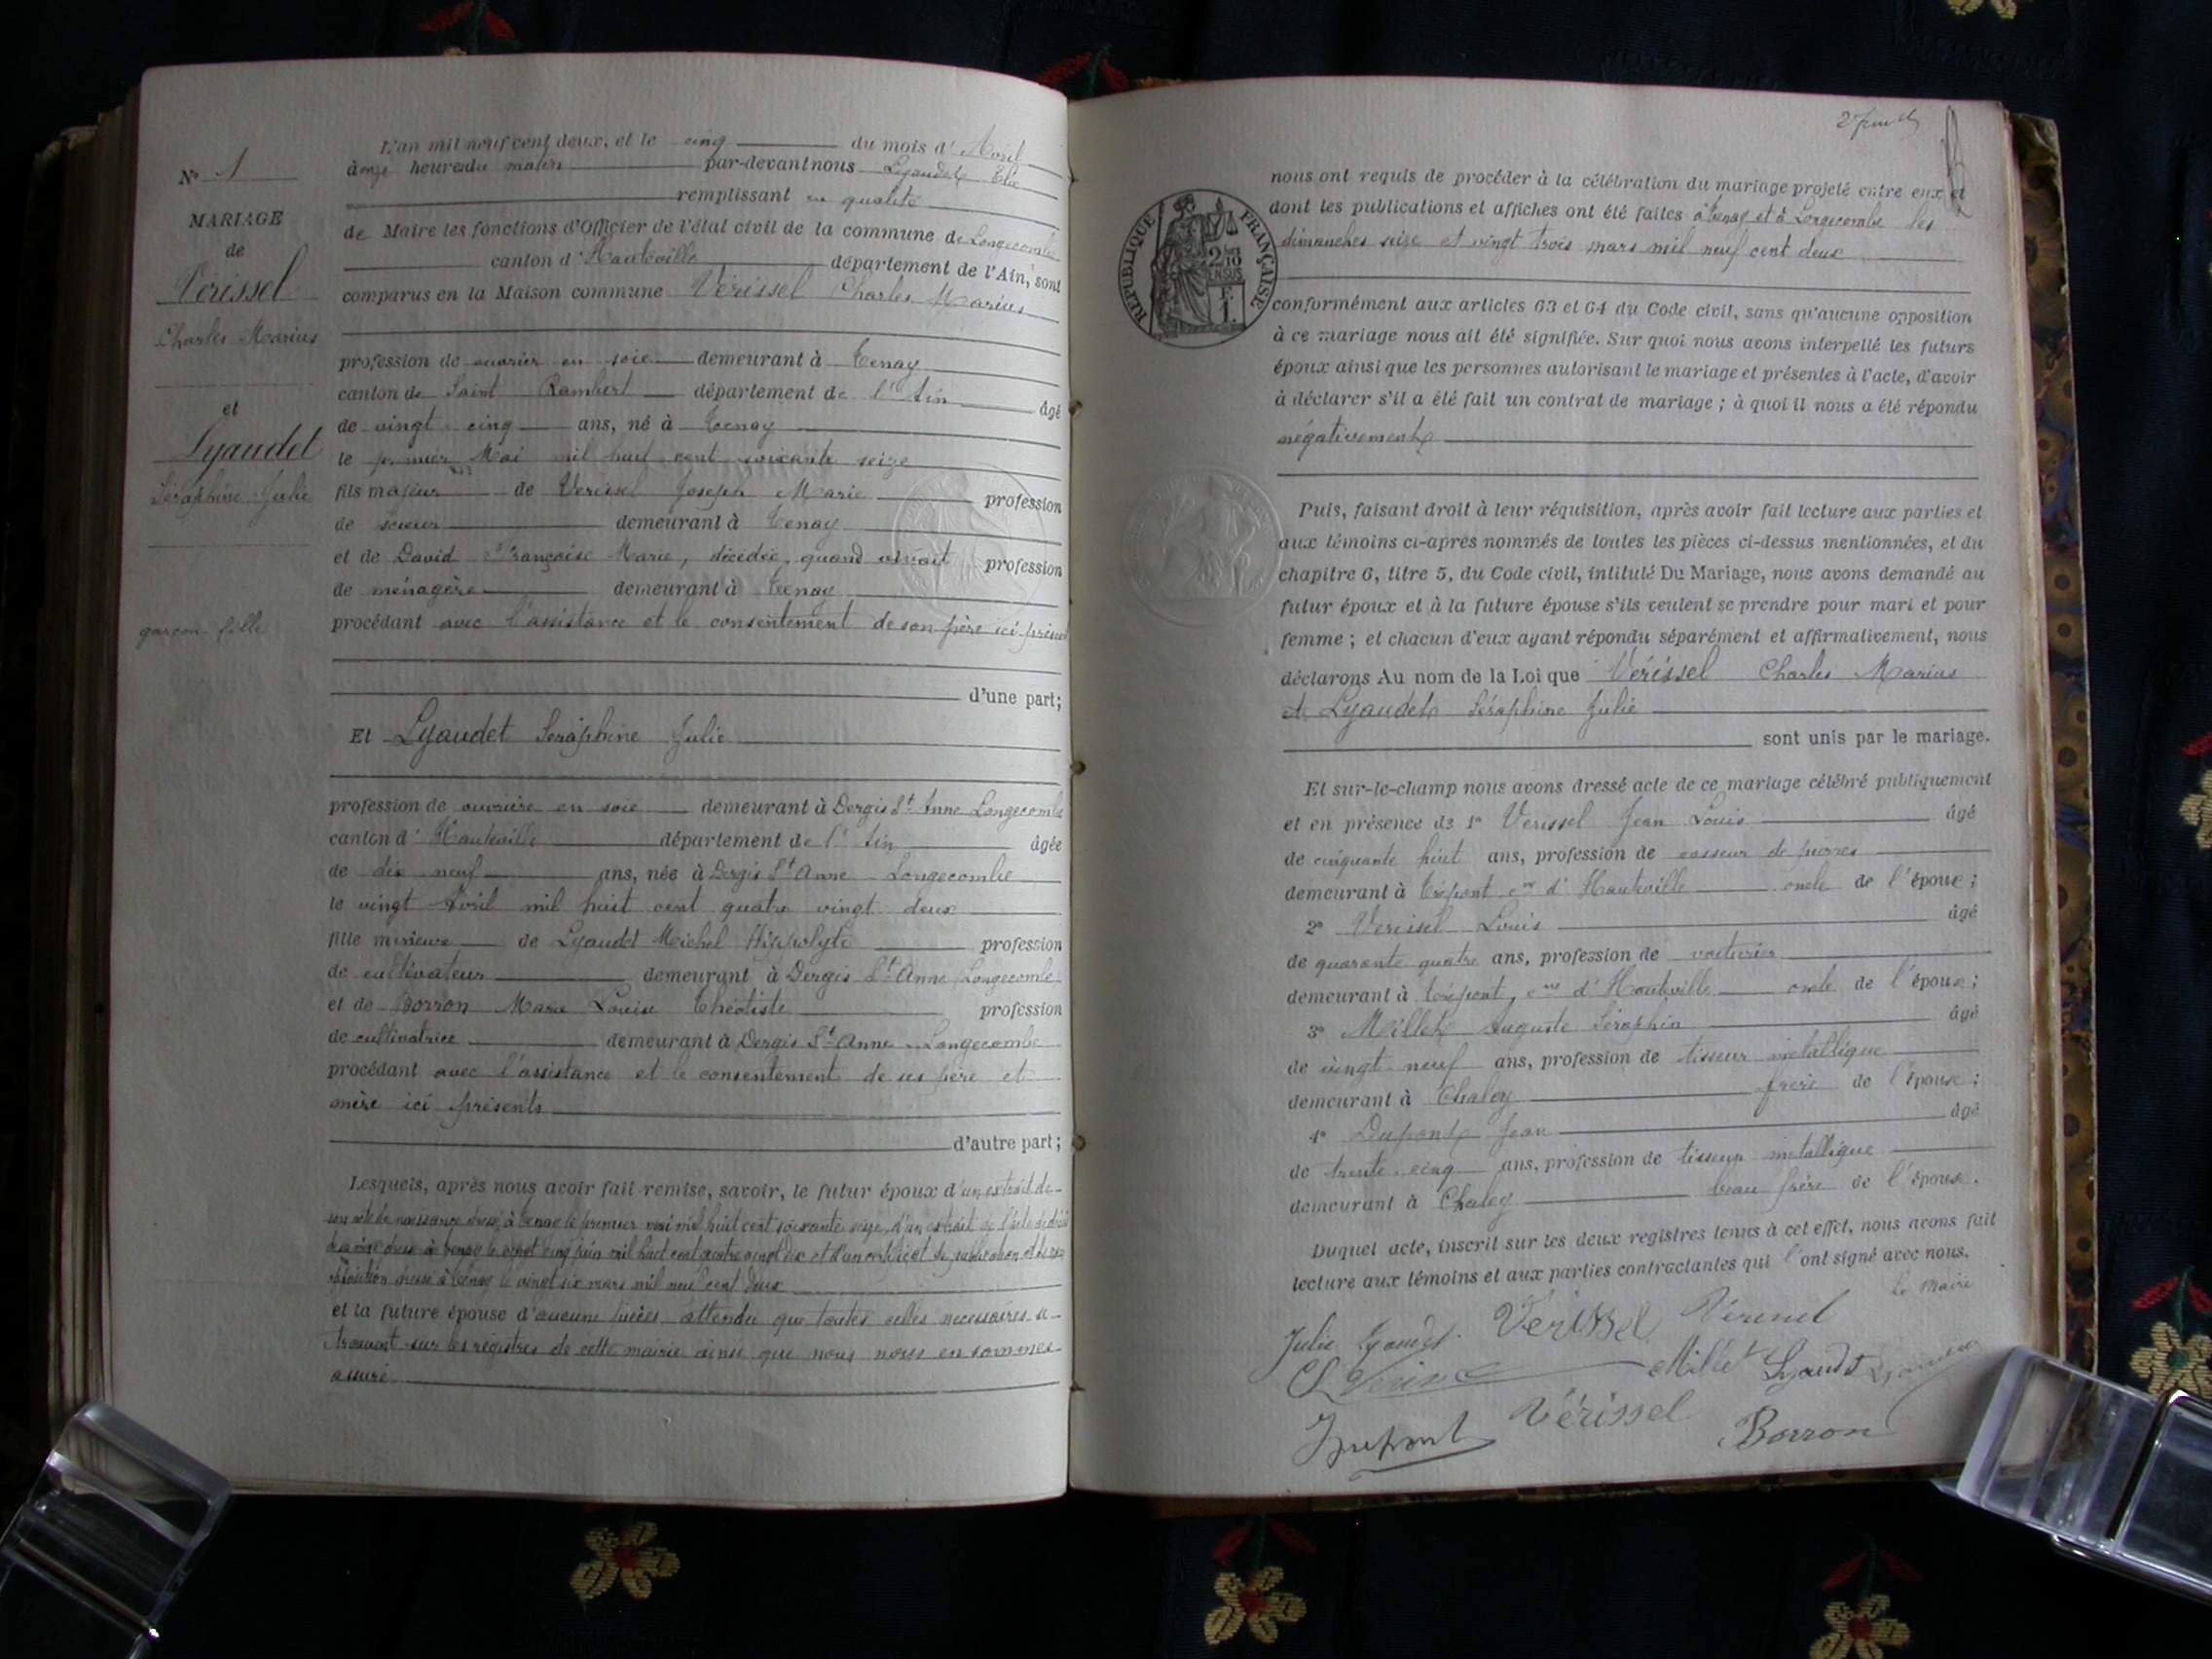 N° 1
MARIAGE
de
Vérissel
Charles Marius
et
Lyaudet
Séraphine Julie
garçon fille
L'an mil neuf cent deux, et le cinq du mois d'Avril
à onze heures du matin par-devant nous Lyaudet Elie
remplissant en qualité
de Maire les fonctions d'Officier de l'état civil de la commune de Longecombe
canton d'Hauteville département de l'Ain, sont
comparus en la Maison commune Vérissel Charles Marius
profession de ouvrier en soie demeurant à Tenay
canton de Saint Rambert département de l'Ain âgé
de vingt cinq ans, né à Tenay
le premier Mai mil huit cent soixante seize
fils majeur de Verissel Joseph Marie profession
de scieur demeurant à Tenay
et de David Françoise Marie, décédée, quand vivait profession
de ménagère demeurant à Tenay
procédant avec l'assistance et le consentement de son père ici présent
d'une part;
Et Lyaudet Séraphine Julie
profession de ouvrière en soie demeurant à Dergis St Anne Longecombe
canton d'Hauteville département de l'Ain âgée
de dix neuf ans, née à Dergis St Anne - Longecombe
le vingt Avril mil huit cent quatre vingt deux
fille mineure de Lyaudet Michel Hippolyte profession
de cultivateur demeurant à Dergis St Anne Longecombe
et de Borron Marie Louise Théotiste profession
de cultivatrice demeurant à Dergis St Anne - Longecombe
procédant avec l'assistance et le consentement de ses père et
mère ici présents
d'autre part;
Lesquels, après nous avoir fait remise, savoir, le futur époux d'un extrait de
son acte de naissance dressé à Tenay le premier mai mil huit cent soixante seize, d'un extrait de l'acte de décès
de sa mère dressé à Tenay le vingt cinq juin mil huit cent quatre vingt dix et d'un certificat de publication et de non
opposition dressé à Tenay le vingt six mars mil neuf cent deux
et la future épouse d'aucune pièces attendu que toutes celles nécessaires se
trouvent sur les registres de cette mairie ainsi que nous nous en sommes
assuré
nous ont requis de procéder à la célébration du mariage projeté entre eux et
dont les publications et affiches ont été faites à Tenay et à Longecombe les
dimanches seize et vingt trois mars mil neuf cent deux
RÉPUBLIQUE FRANÇAISE
conformément aux articles 63 et 64 du Code civil, sans qu'aucune opposition
à ce mariage nous ait été signifiée. Sur quoi nous avons interpellé les futurs
époux ainsi que les personnes autorisant le mariage et présentes à l'acte, d'avoir
à déclarer s'il a été fait un contrat de mariage; à quoi il nous a été répondu
négativement
Puis, faisant droit à leur réquisition, après avoir fait lecture aux parties et
aux témoins ci-après nommés de toutes les pièces ci-dessus mentionnées, et du
chapitre 6, titre 5, du Code civil, intitulé Du Mariage, nous avons demandé au
futur époux et à la future épouse s'ils veulent se prendre pour mari et pour
femme; et chacun d'eux ayant répondu séparément et affirmativement, nous
déclarons Au nom de la Loi que Vérissel Charles Marius
et Lyaudet Séraphine Julie
sont unis par le mariage.
Et sur-le-champ nous avons dressé acte de ce mariage célébré publiquement
et en présence de 1° Verissel Jean Louis âgé
de cinquante huit ans, profession de casseur de pierres
demeurant à Trépont cne d'Hauteville oncle de l'époux;
2° Verissel Louis âgé
de quarante quatre ans, profession de voiturier
demeurant à Trépont, cne d'Hauteville oncle de l'époux;
3° Millet Auguste Séraphin âgé
de vingt neuf ans, profession de tisseur métallique
demeurant à Chaley frère de l'épouse;
4° Dupont Jean âgé
de trente cinq ans, profession de tisseur métallique
demeurant à Chaley beau frère de l'épouse.
Duquel acte, inscrit sur les deux registres tenus à cet effet, nous avons fait
lecture aux témoins et aux parties contractantes qui l'ont signé avec nous.
Le Maire
Julie Lyaudet Vérissel Vérissel
Millet Lyaudet
Dupont Vérissel Borron